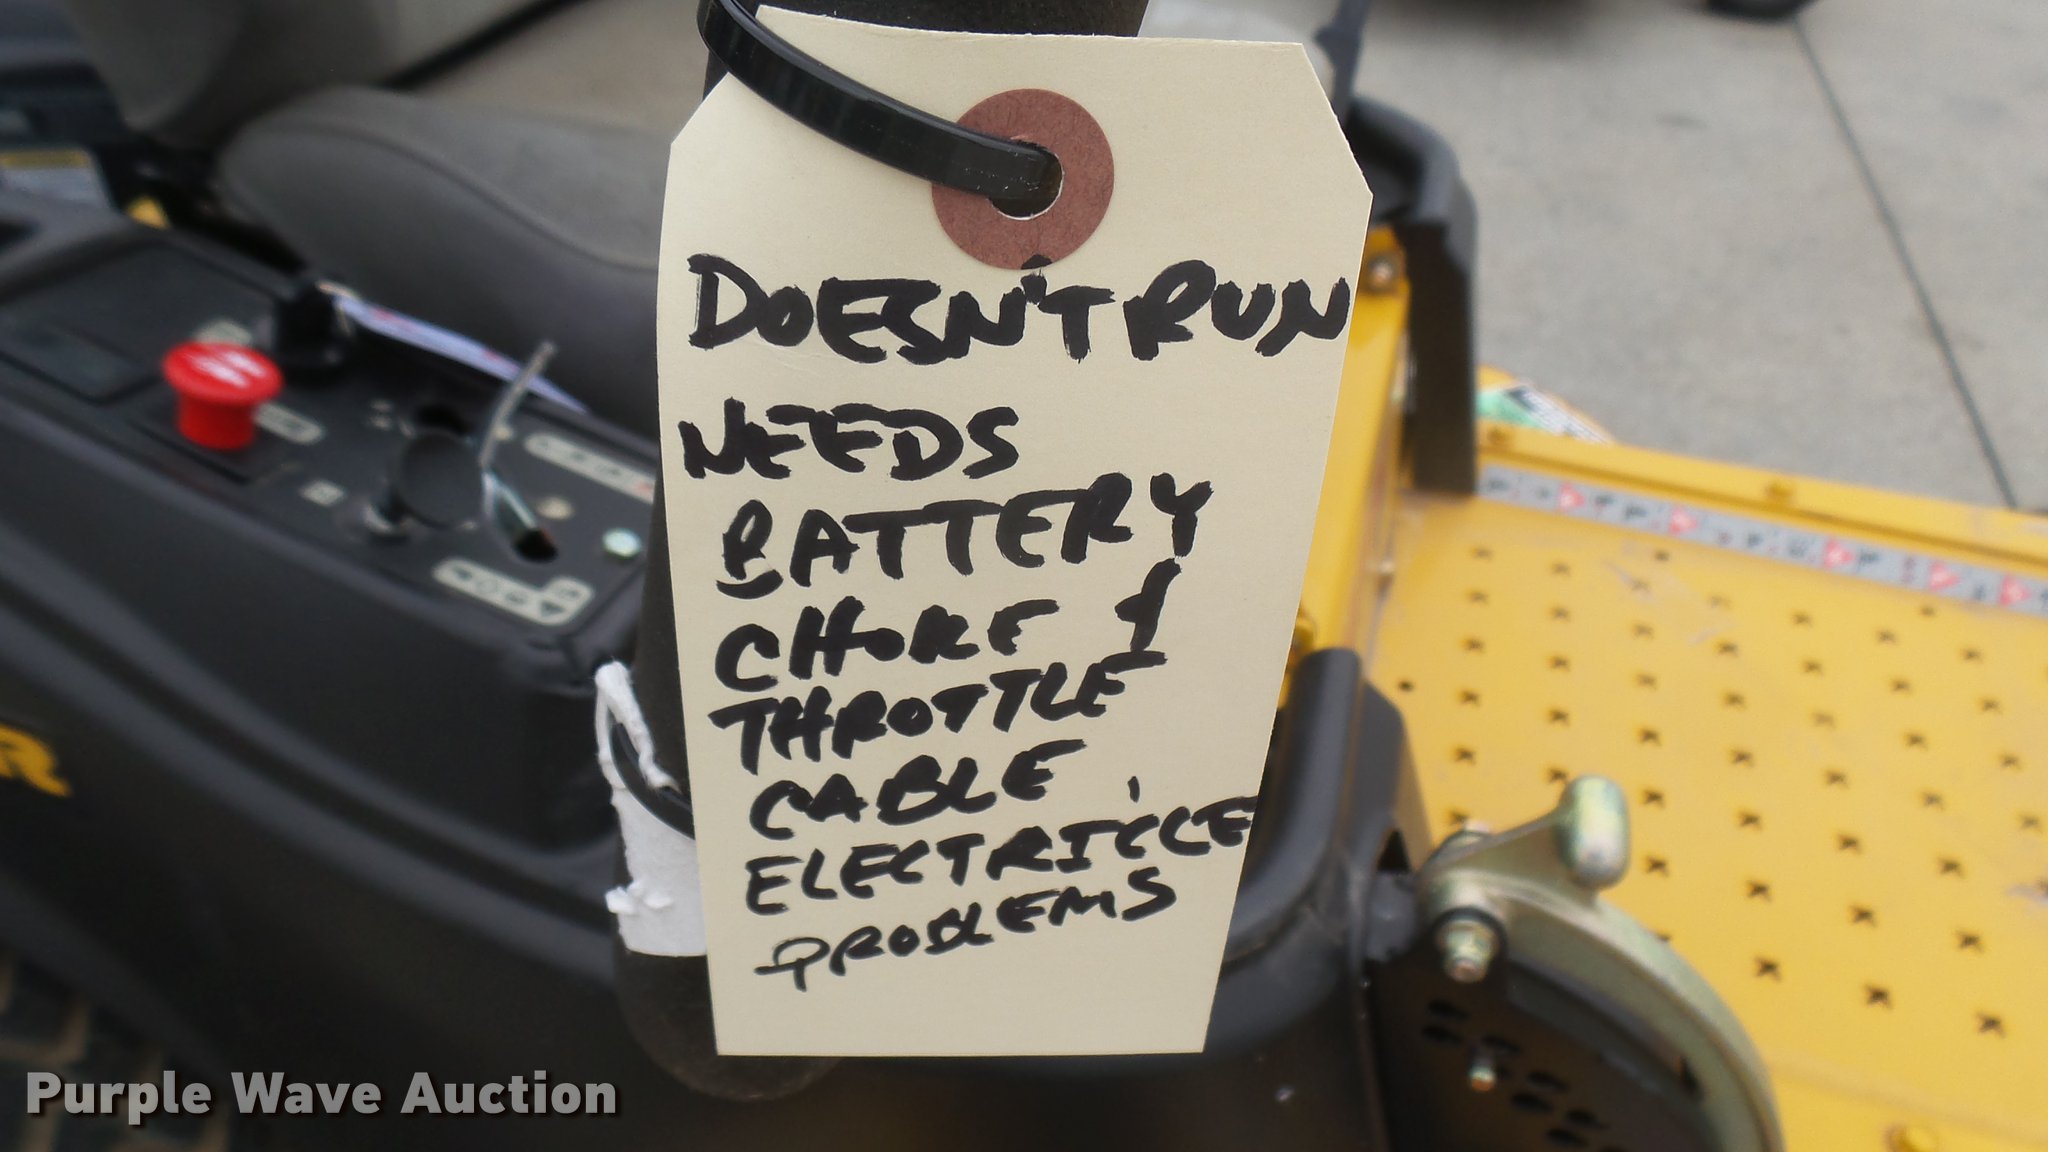 DOESN'T RUN
NEEDS
BATTERY
CHOKE &
THROTTLE
CABLE,
ELECTRICLE
PROBLEMS
Purple Wave Auction